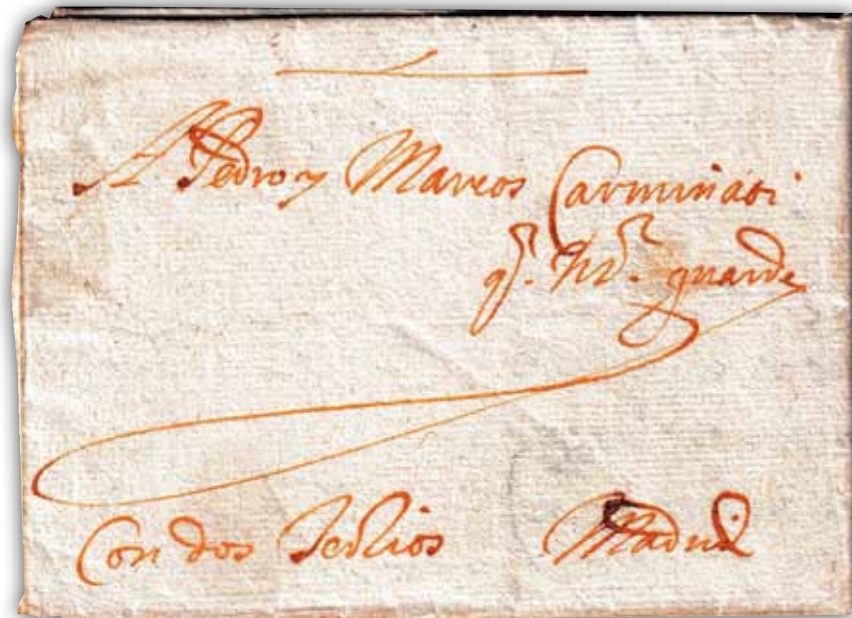 A Pedro y Marcos Carminati
q.e N.S. guarde
Con dos Madrid